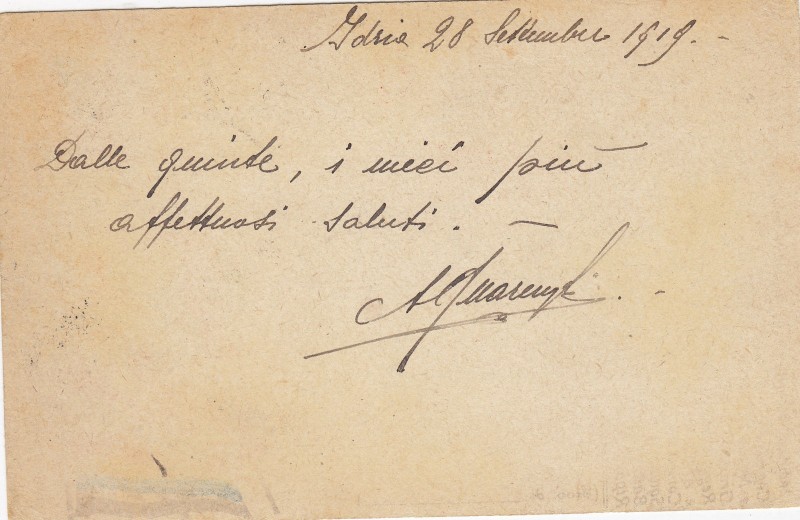 Idria 28 Settembre 1919. -
Dalle quinte, i miei più
affettuosi saluti. -